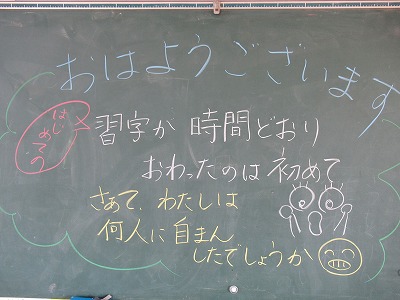 おはようございます
はじ
めての
習字が 時間どおり
おわったのは 初めて
さぁて、わたしは
何人に 自まん
したでしょうか